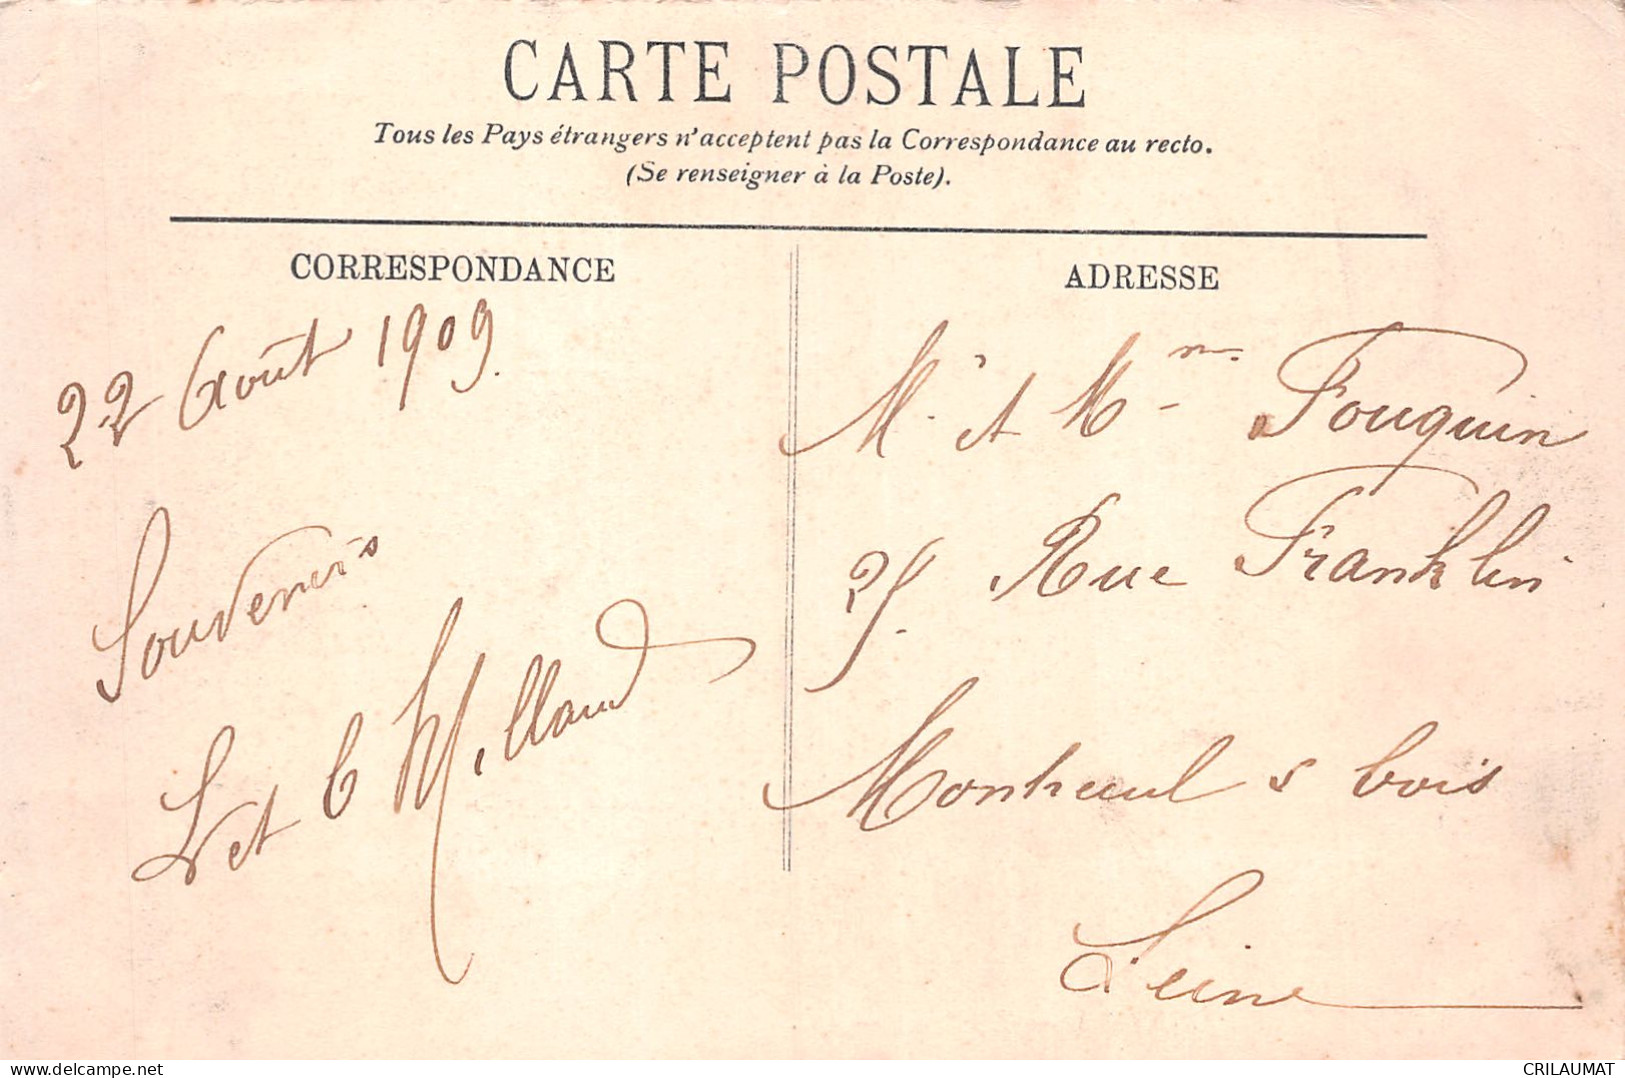 CARTE POSTALE
Tous les Pays étrangers n'acceptent pas la Correspondance au recto.
(Se renseigner à la Poste).
CORRESPONDANCE
22 Août 1909.
Souvenirs
L et C Millaud
ADRESSE
Mr et Mme Fouquin
25 Rue Franklin
Montreuil s bois
Seine
delcampe.net
CRILAUMAT